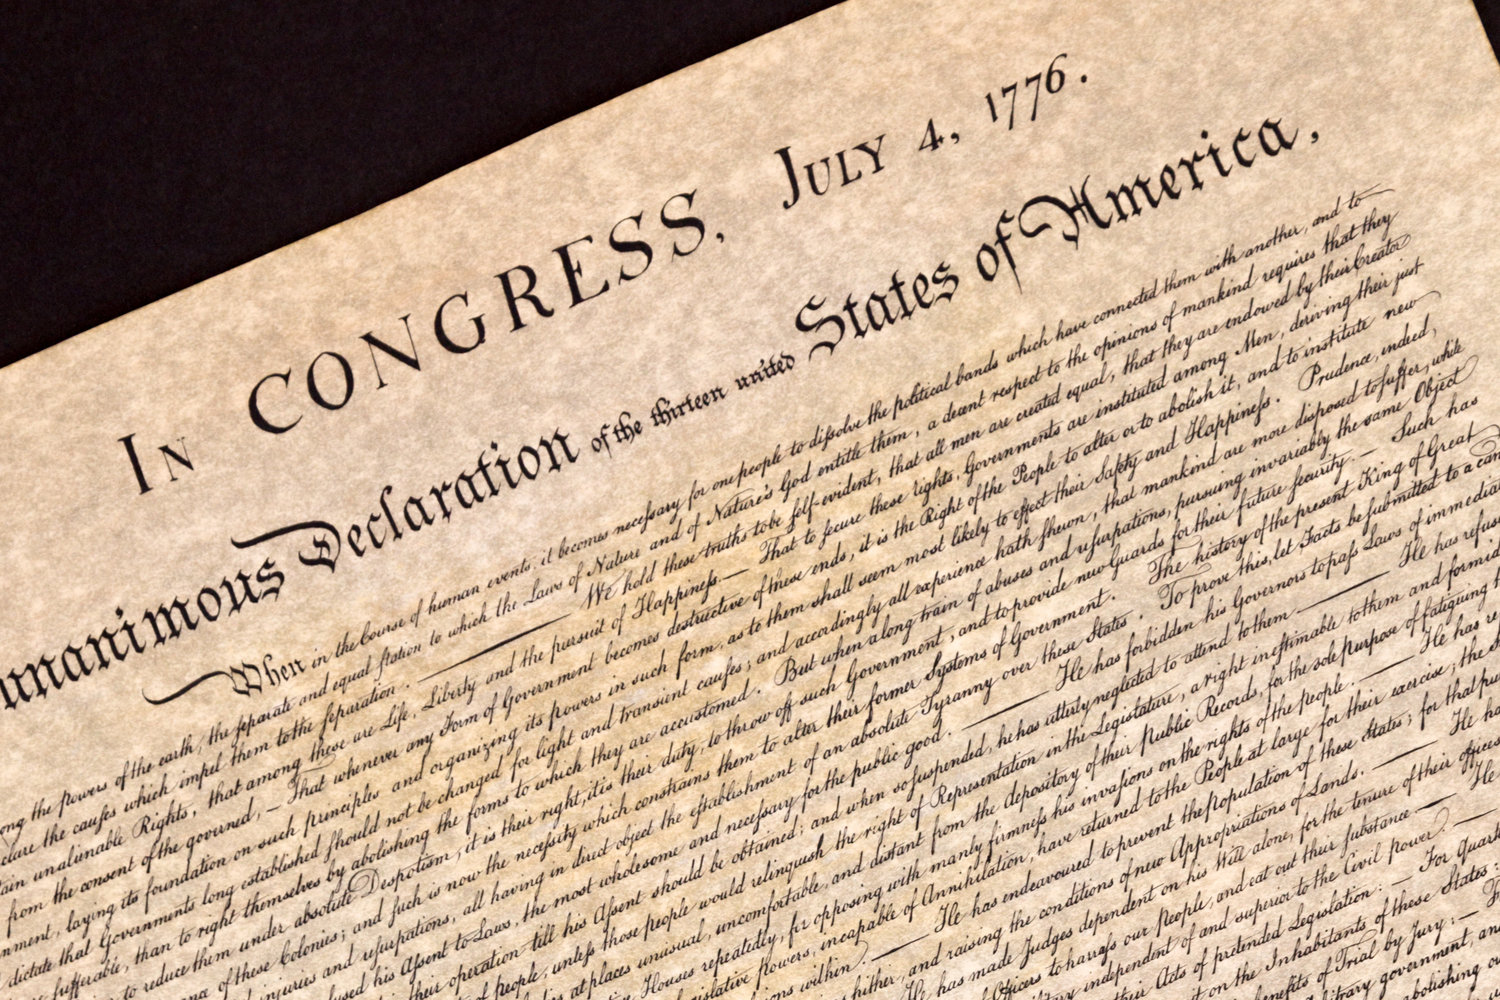 In CONGRESS, July 4, 1776.
unanimous Declaration of the thirteen united States of America,
When in the Course of human events, it becomes necessary for one people to dissolve the political bands which have connected them with another, and to
the powers of the earth, the separate and equal station to which the Laws of Nature and of Nature's God entitle them, a decent respect to the opinions of mankind requires that they
the causes which impel them to the separation. — We hold these truths to be self-evident, that all men are created equal, that they are endowed by their Creator
unalienable Rights, that among these are Life, Liberty and the pursuit of Happiness. — That to secure these rights, Governments are instituted among Men, deriving their just
from the consent of the governed, — That whenever any Form of Government becomes destructive of these ends, it is the Right of the People to alter or to abolish it, and to institute new
laying its foundation on such principles and organizing its powers in such form, as to them shall seem most likely to effect their Safety and Happiness. Prudence, indeed,
dictate that Governments long established should not be changed for light and transient causes; and accordingly all experience hath shewn, that mankind are more disposed to suffer, while
sufferable, than to right themselves by abolishing the forms to which they are accustomed. But when a long train of abuses and usurpations, pursuing invariably the same Object
to reduce them under absolute Despotism, it is their right, it is their duty, to throw off such Government, and to provide new Guards for their future security. — Such has
of these Colonies; and such is now the necessity which constrains them to alter their former Systems of Government. The history of the present King of Great
injuries and usurpations, all having in direct object the establishment of an absolute Tyranny over these States. To prove this, let Facts be submitted to a
his Assent to Laws, the most wholesome and necessary for the public good. — He has forbidden his Governors to pass Laws of
their operation till his Assent should be obtained; and when so suspended, he has utterly neglected to attend to them — He has
of people, unless those people would relinquish the right of Representation in the Legislature, a right inestimable to them and
at places unusual, uncomfortable, and distant from the depository of their Public Records, for the sole purpose of fatiguing
Houses repeatedly, for opposing with manly firmness his invasions on the rights of the people. — He has
Powers, incapable of Annihilation, have returned to the People at large for their exercise; the
within. — He has endeavoured to prevent the population of these States; for that
hither, and raising the conditions of new Appropriations of Lands. — He
He has made Judges dependent on his Will alone, for the tenure of their offices
Officers to harrass our People, and eat out their substance — He
independent of and superior to the Civil power. —
their Acts of pretended Legislation: — For
on the Inhabitants of these States:
benefits of Trial by Jury: —
government,
abolishing